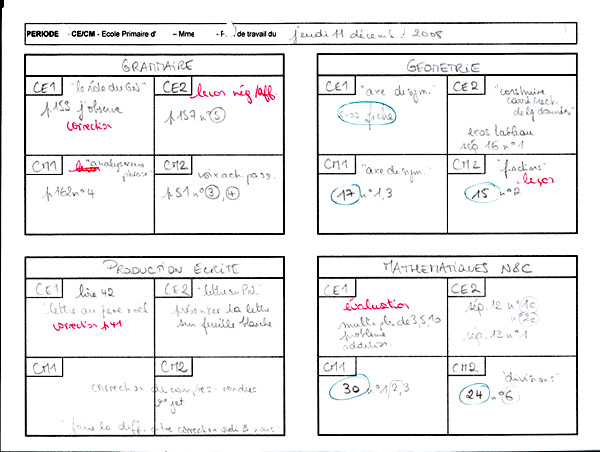 PERIODE - CE/CM - Ecole Primaire d' - Mme - de travail du jeudi 11 décembre 2008
GRAMMAIRE
CE1 "le rôle du GN"
p 155 j'observe
correction
CE2 leçon nég/Aff
p 157 n° 5
CM1 "analyse
phrase"
p 162 n° 4
CM2 voix act. pass.
p 51 n° 3, 4
GEOMETRIE
CE1 "axe de sym."
exos fiche
CE2 "construire
carré/rect.
données"
exos tableau
séq 16 n° 1
CM1 "axe de sym."
17 n° 1, 3
CM2 "fractions"
leçon
15 n° 2
PRODUCTION ECRITE
CE1 lire 42
"lettre au père noël
correction p 41
CE2 "lettre au P.N.
présenter la lettre
sur feuille blanche
CM1
CM2
correction comptes-rendus
jet
"faire la diff. entre correction
MATHEMATIQUES N&C
CE1
évaluation
multiples de 3, 5, 10
problème
addition
CE2
séq. 12 n° 1c
n° 2c
séq. 13 n° 1
CM1
30 n° 1, 2, 3
CM2
"divisions"
24 n° 6